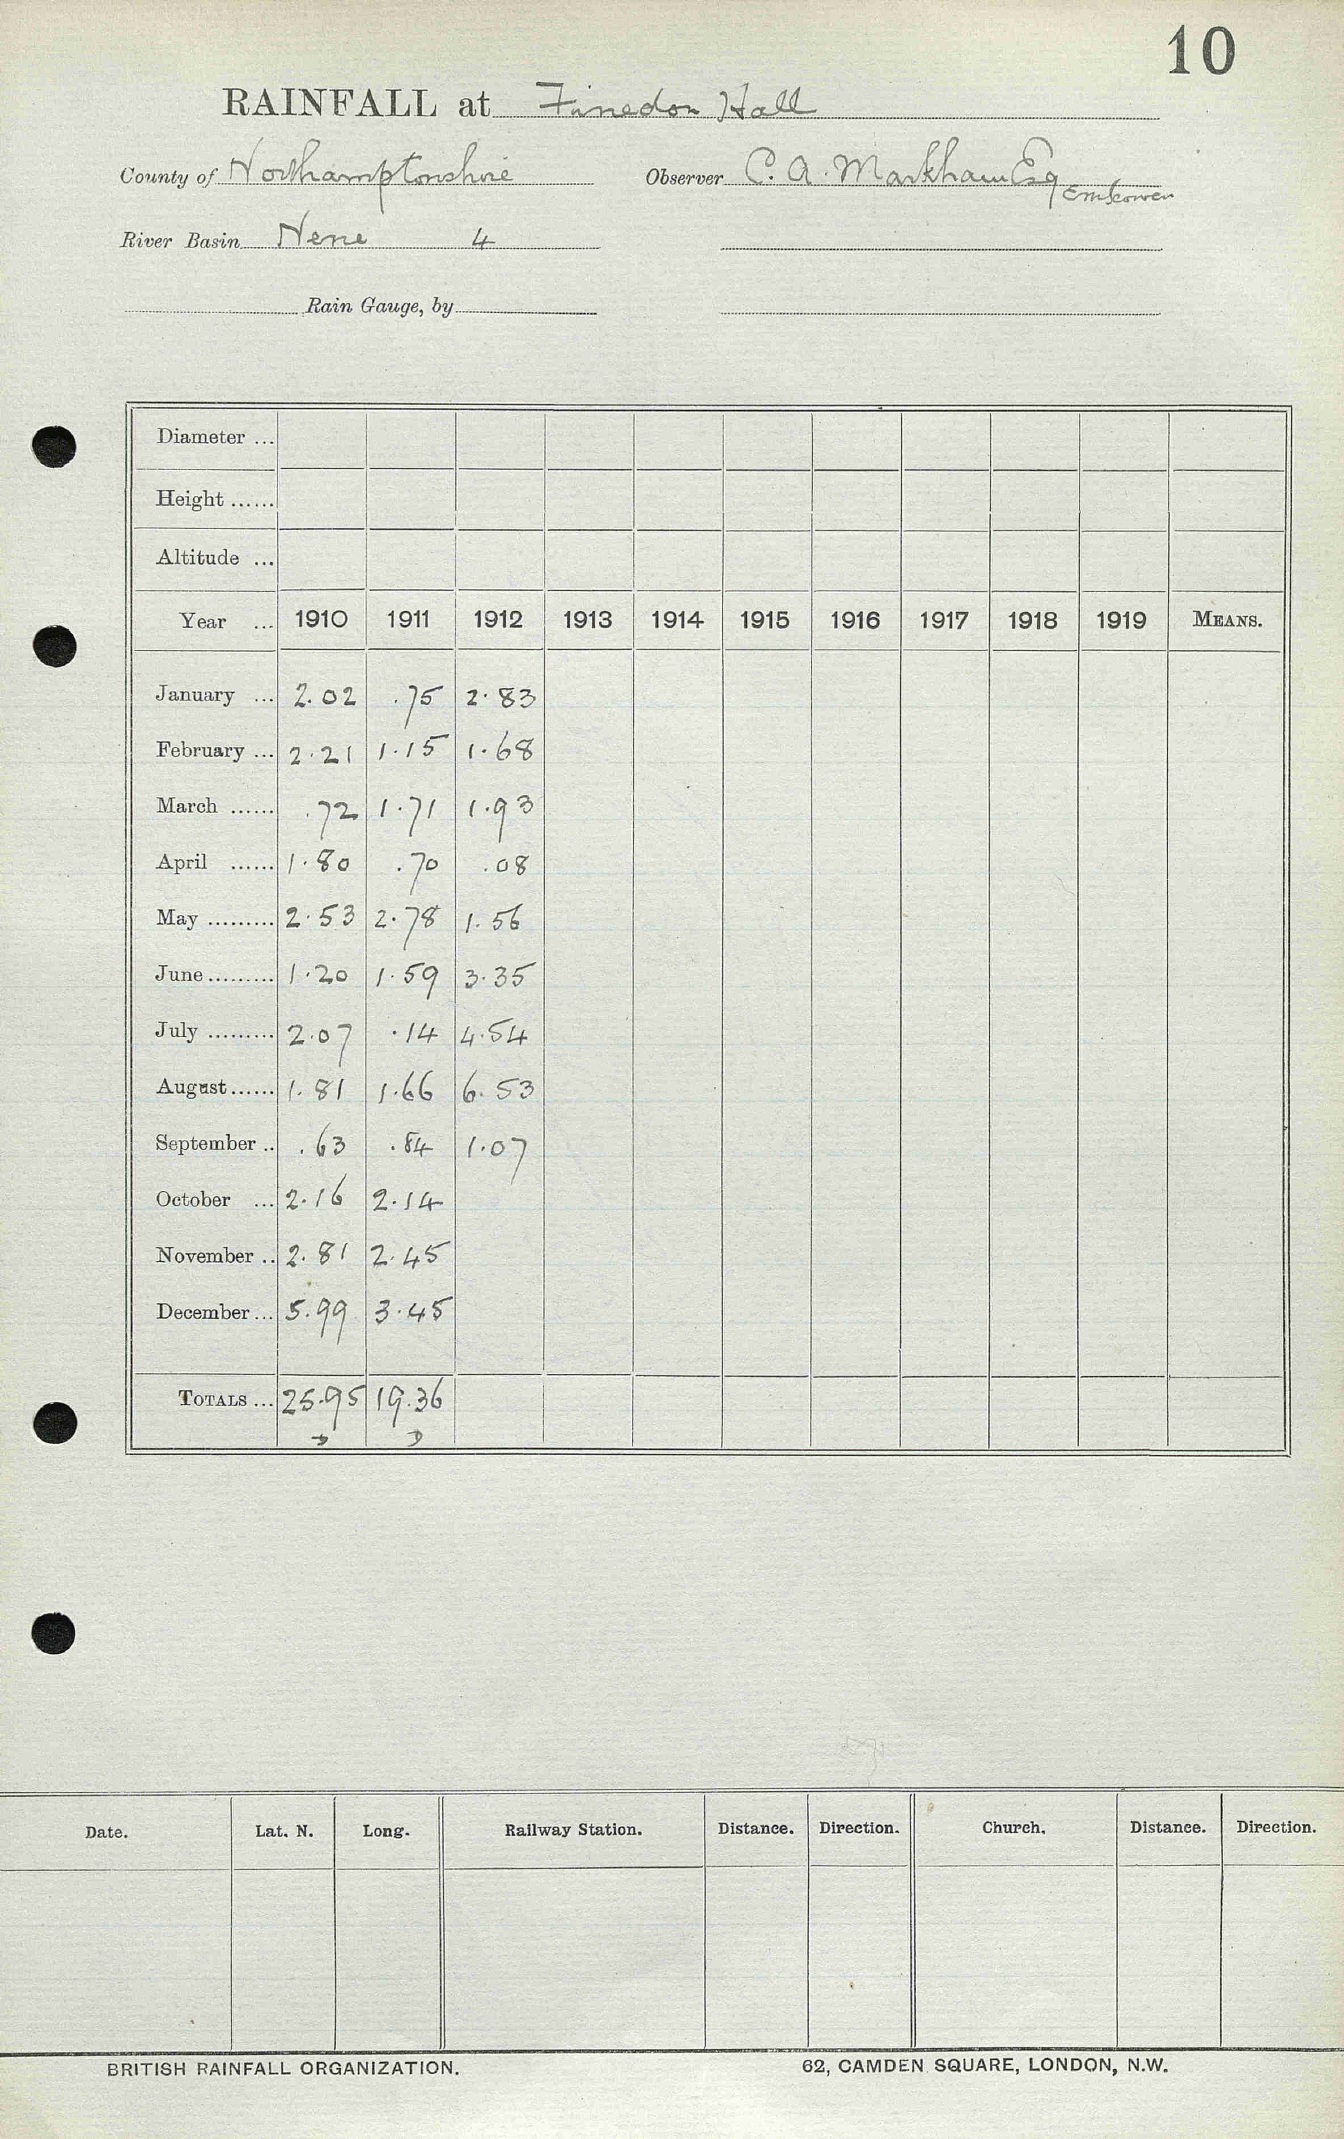 10
RAINFALL at Finedon Hall
County of Northamptonshire Observer C. A. Markham Esq
River Basin Nene 4
Rain Gauge, by
Diameter ...
Height ......
Altitude ...
Year ... 1910 1911 1912 1913 1914 1915 1916 1917 1918 1919 MEANS.
January ... 2.02 .75 2.83
February ... 2.21 1.15 1.68
March ...... .72 1.71 1.93
April ...... 1.80 .70 .08
May ......... 2.53 2.78 1.56
June ......... 1.20 1.59 3.35
July ......... 2.07 .14 4.54
August ...... 1.81 1.66 6.53
September .. .63 .84 1.07
October ... 2.16 2.14
November .. 2.81 2.45
December ... 5.99 3.45
TOTALS ... 25.95 19.36
Date. Lat. N. Long. Railway Station. Distance. Direction. Church. Distance. Direction.
BRITISH RAINFALL ORGANIZATION. 62, CAMDEN SQUARE, LONDON, N.W.